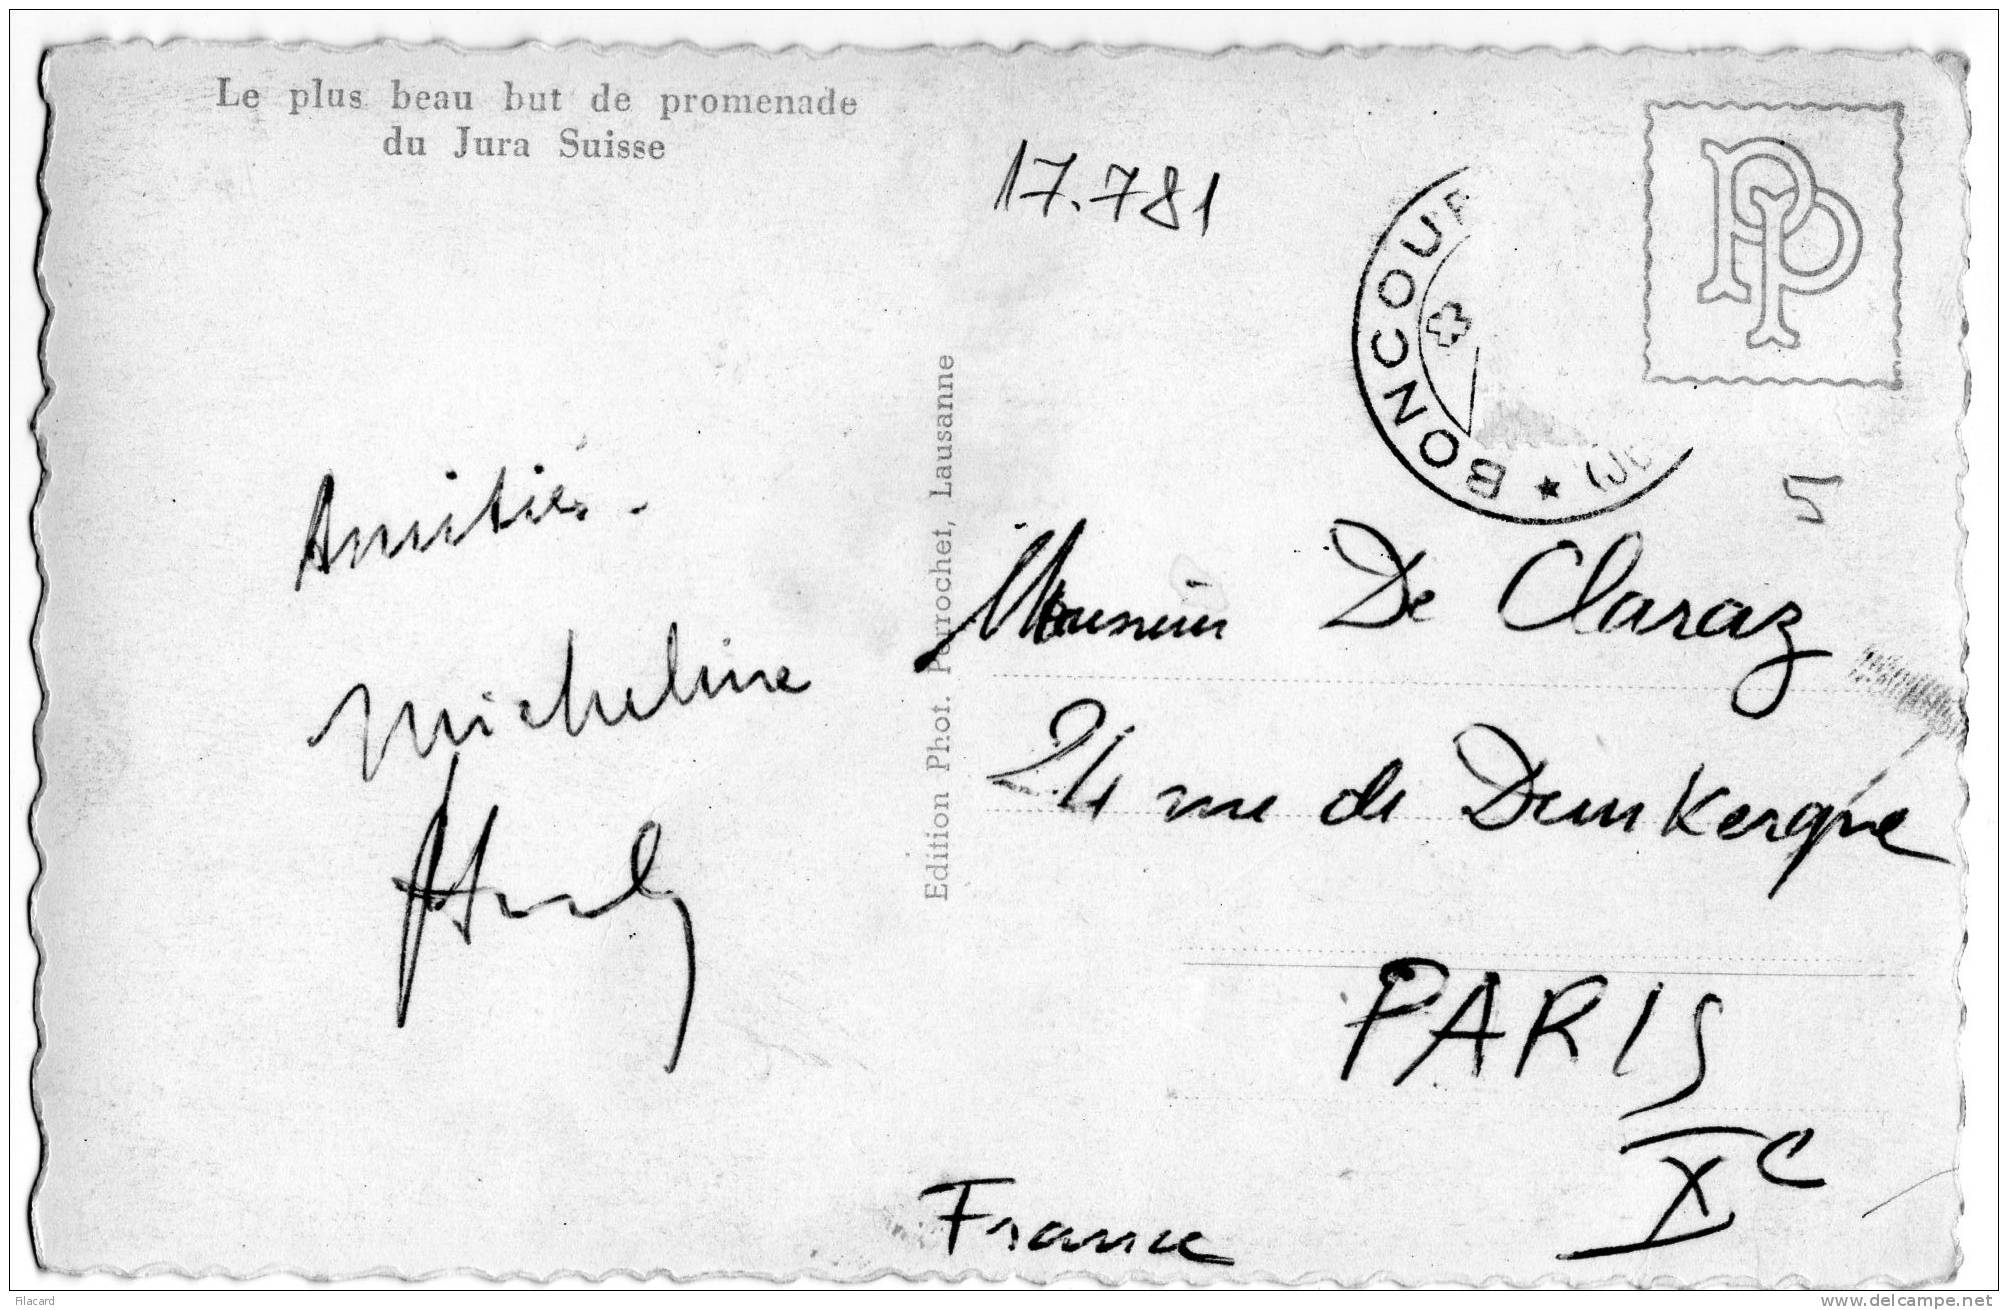 Le plus beau but de promenade
du Jura Suisse
17.781
BONCOUR
PP
5
Amitiés.
Micheline
Edition Phot. Perrochet, Lausanne
Monsieur De Claraz
24 rue de Dunkerque
PARIS
Xe
France
Filacard
delcampe.net